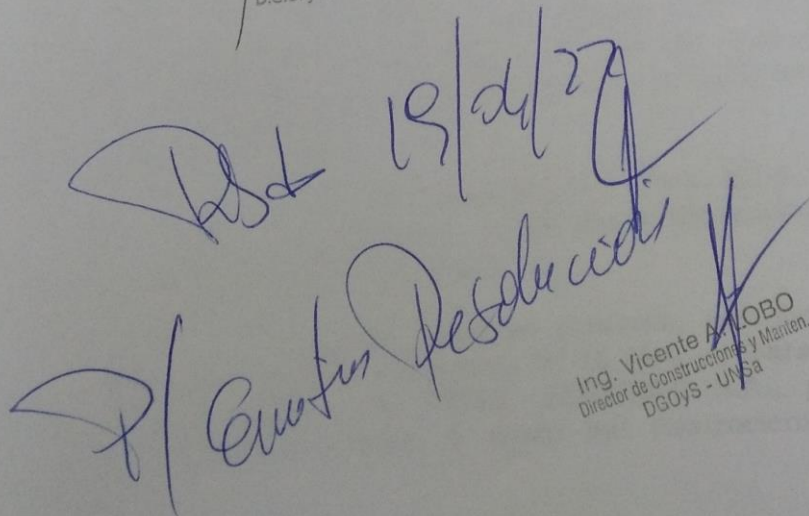 19/04/22
P/ Emitir Resolución
Ing. Vicente A. LOBO
Director de Construcciones y Manten.
DGOyS - UNSa